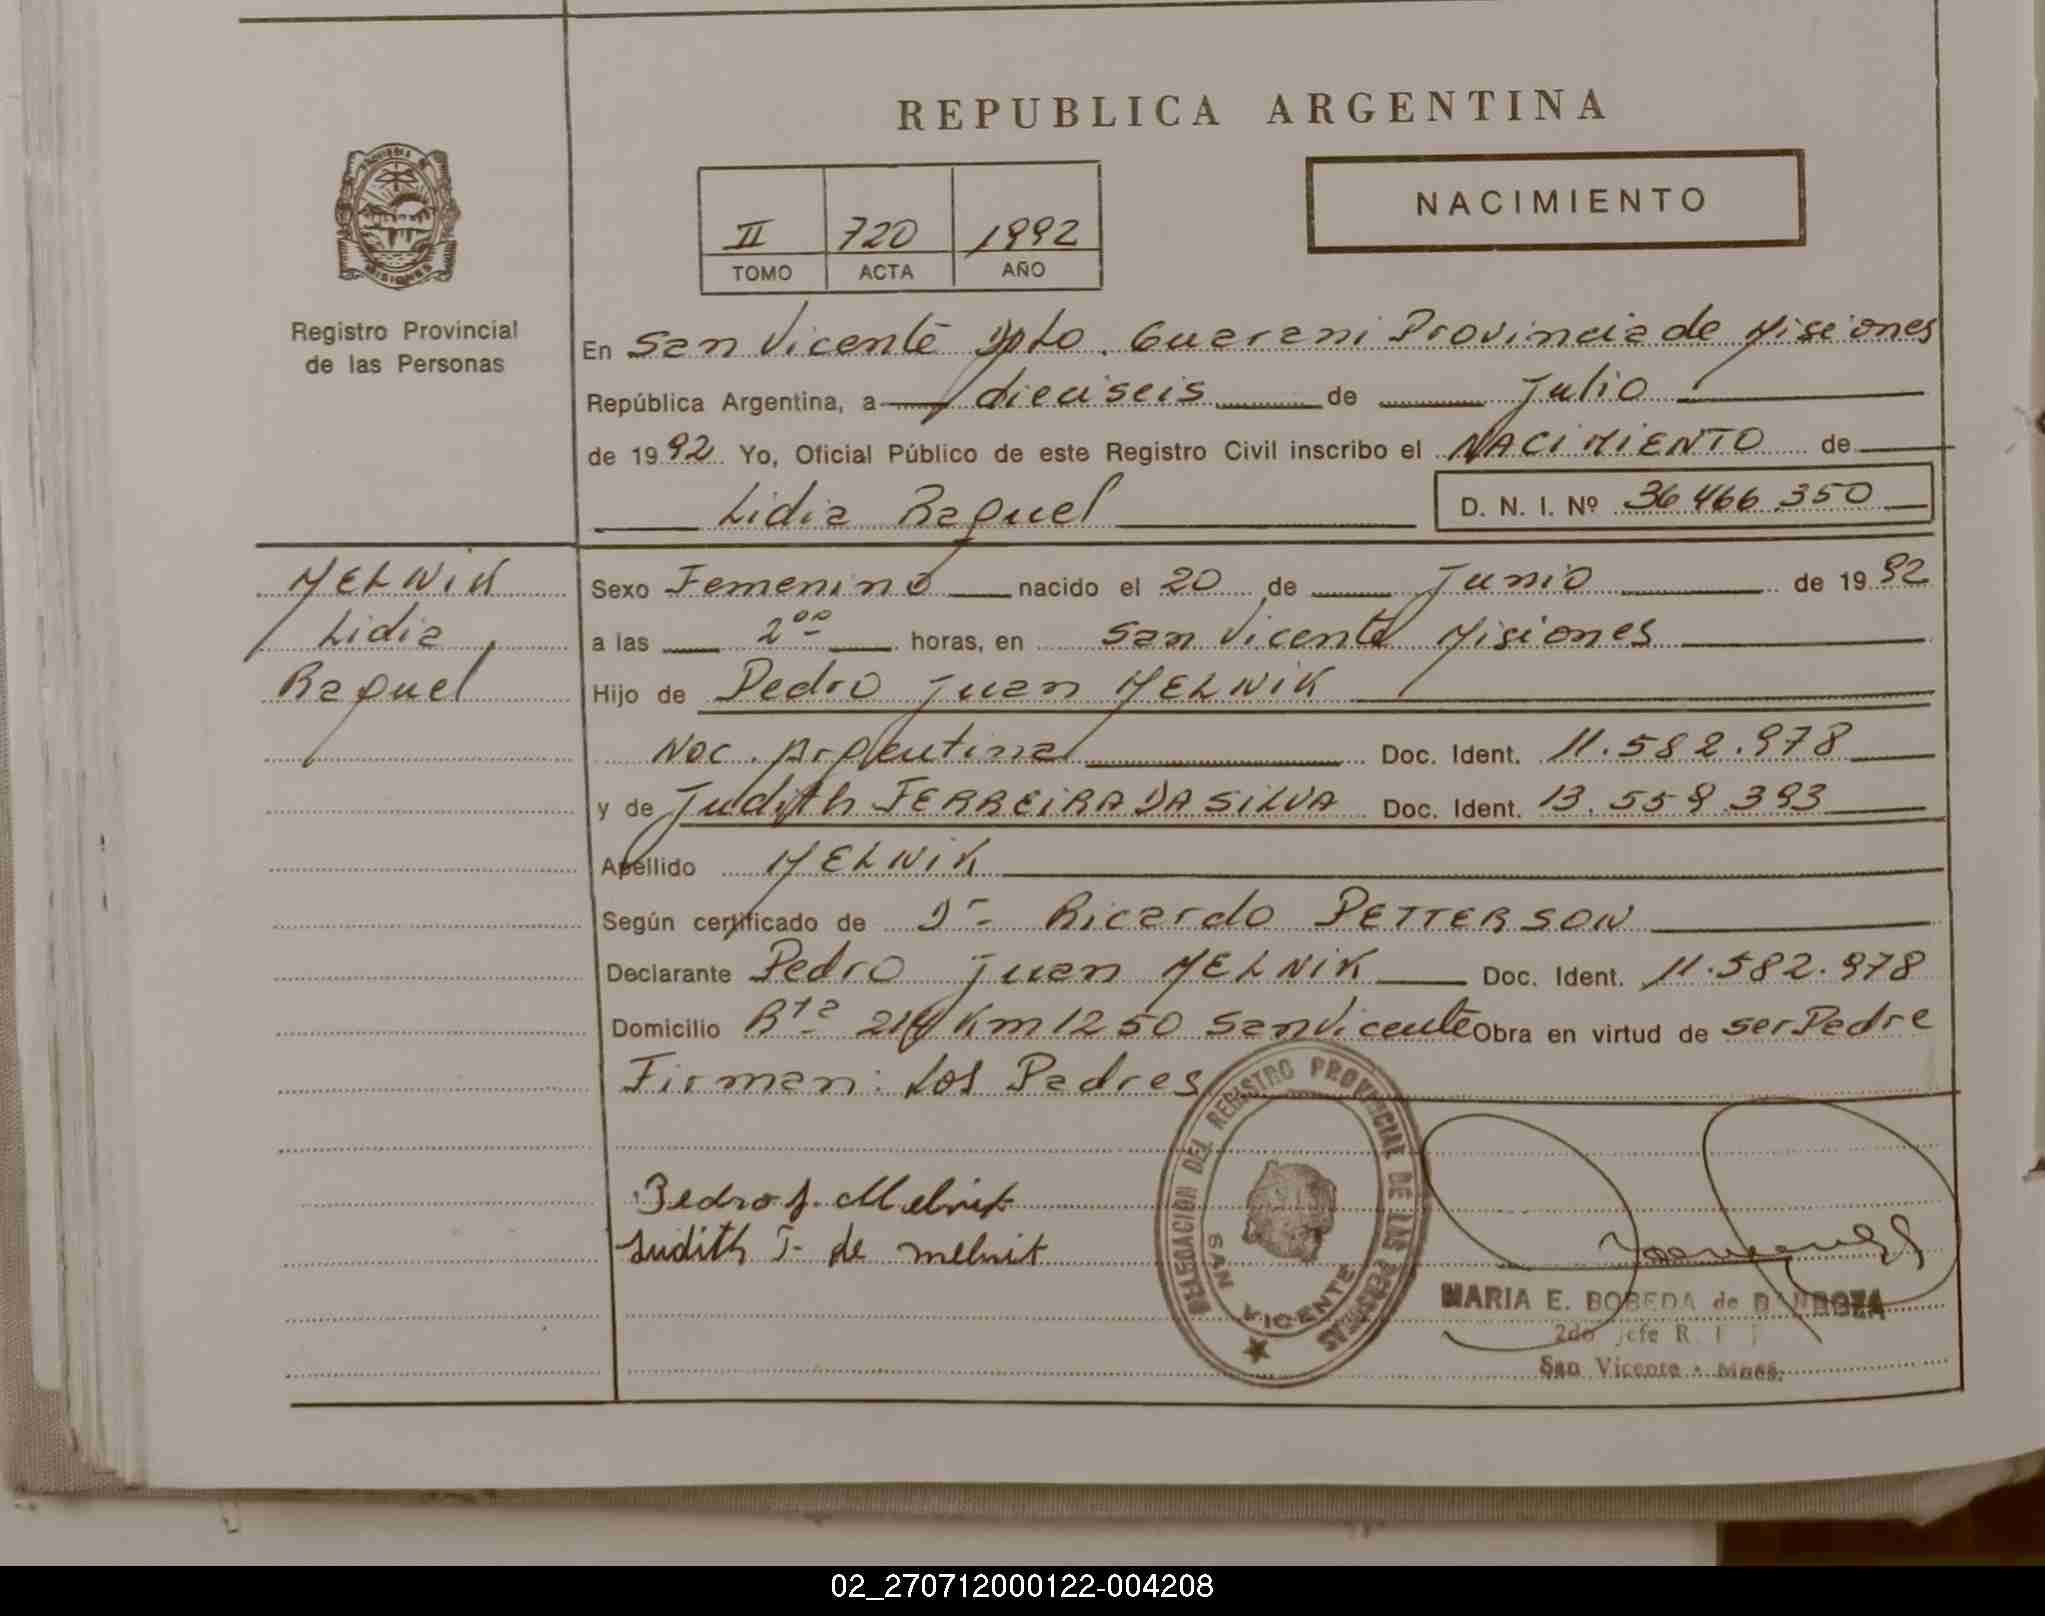 REPUBLICA ARGENTINA
PROVINCIA DE
MISIONES
Registro Provincial
de las Personas
II 720 1992
TOMO ACTA AÑO
NACIMIENTO
En San Vicente Dpto. Guarani Provincia de Misiones
República Argentina, a dieciseis de Julio
de 1992. Yo, Oficial Público de este Registro Civil inscribo el NACIMIENTO de
Lidia Raquel D. N. I. Nº 36466.350
MELNIK
Lidia
Raquel
Sexo Femenino nacido el 20 de Junio de 1992
a las 2 00 horas, en San Vicente Misiones
Hijo de Pedro Juan MELNIK
Nac. Argentina Doc. Ident. 11.582.978
y de Judith FERREIRA DA SILVA Doc. Ident. 13.559.393
Apellido MELNIK
Según certificado de Dr. Ricardo PETTERSON
Declarante Pedro Juan MELNIK Doc. Ident. 11.582.978
Domicilio Rta 214 Km 1250 San Vicente Obra en virtud de ser Padre
Firman: Los Padres
Pedro J. Melnik
Judith F. de melnik
DELEGACION DEL REGISTRO PROVINCIAL DE LAS PERSONAS
SAN VICENTE
MARIA E. BOBEDA de
2do Jefe R.
San Vicente - Mnes.
02_270712000122-004208